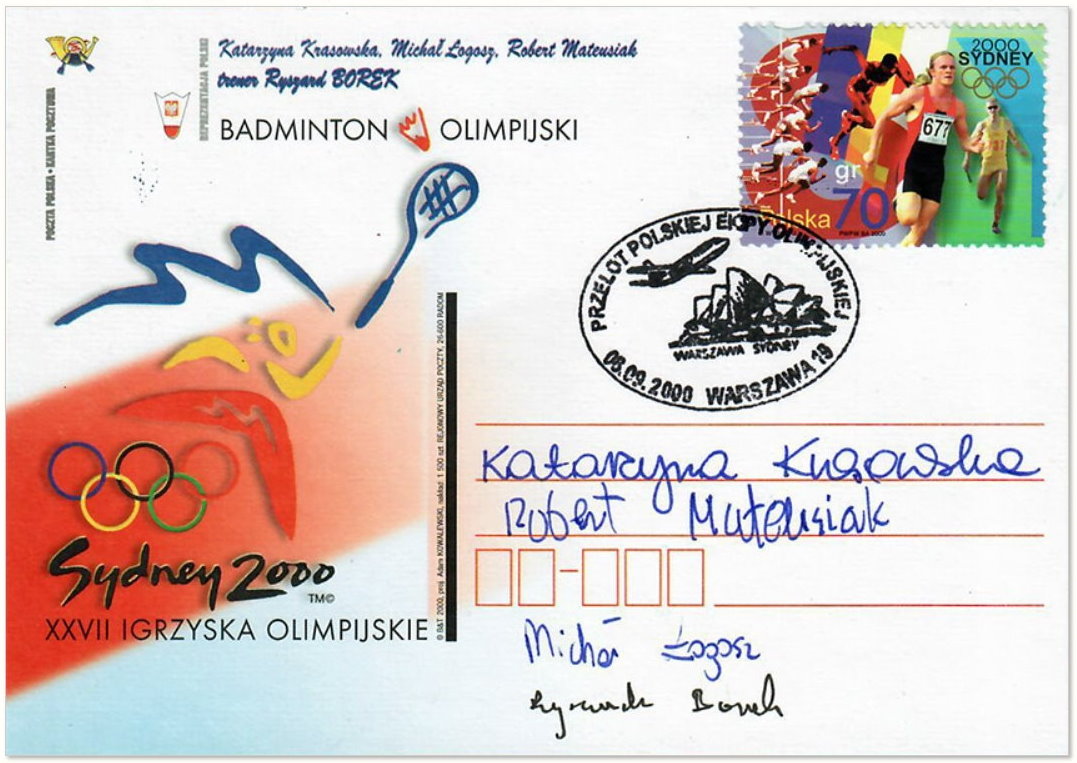 Katarzyna Krasowska, Michał Łogosz, Robert Mateusiak
trener Ryszard BOREK
REPREZENTACJA POLSKI
BADMINTON OLIMPIJSKI
POCZTA POLSKA • KARTKA POCZTOWA
2000
SYDNEY
677
gr
Polska 70
PWPW SA 2000
PRZELOT POLSKIEJ EKIPY OLIMPIJSKIEJ
WARSZAWA SYDNEY
08.09.2000 WARSZAWA 19
© B&T 2000, proj. Adam KOWALEWSKI, nakład: 1 500 szt. REJONOWY URZĄD POCZTY, 26-600 RADOM
Katarzyna Krasowska
Robert Mateusiak
Michał Łogosz
Ryszard Borek
Sydney 2000
TM©
XXVII IGRZYSKA OLIMPIJSKIE